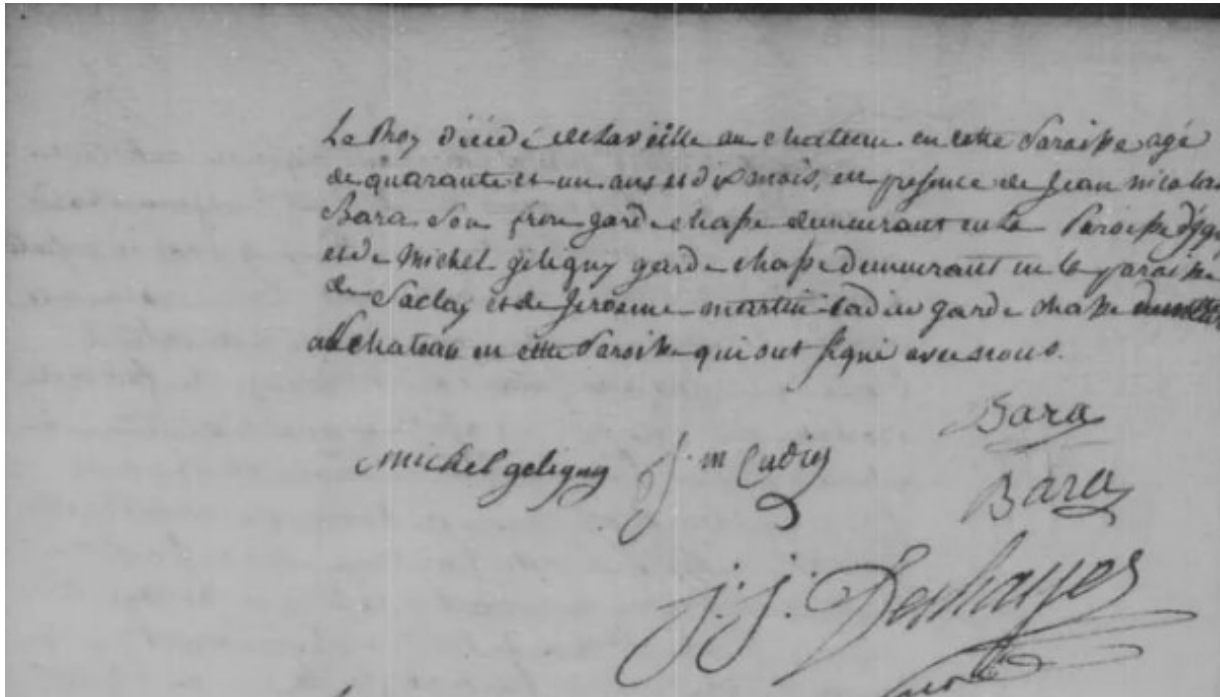 Le Roy décédé de la veille au chateau en cette Paroisse agé
de quarante et un ans et dix mois, en presence de Jean nicolas
Bara son frere garde chasse demeurant en la Paroisse
et de Michel geliguy garde chasse demeurant en la paroisse
de Saclay et de Jerosme martin cadieu garde chasse
au chateau en cette Paroisse qui ont signé avec nous.
Bara
michel geliguy J. m Cadieu
Bara
J. J. Deshayes